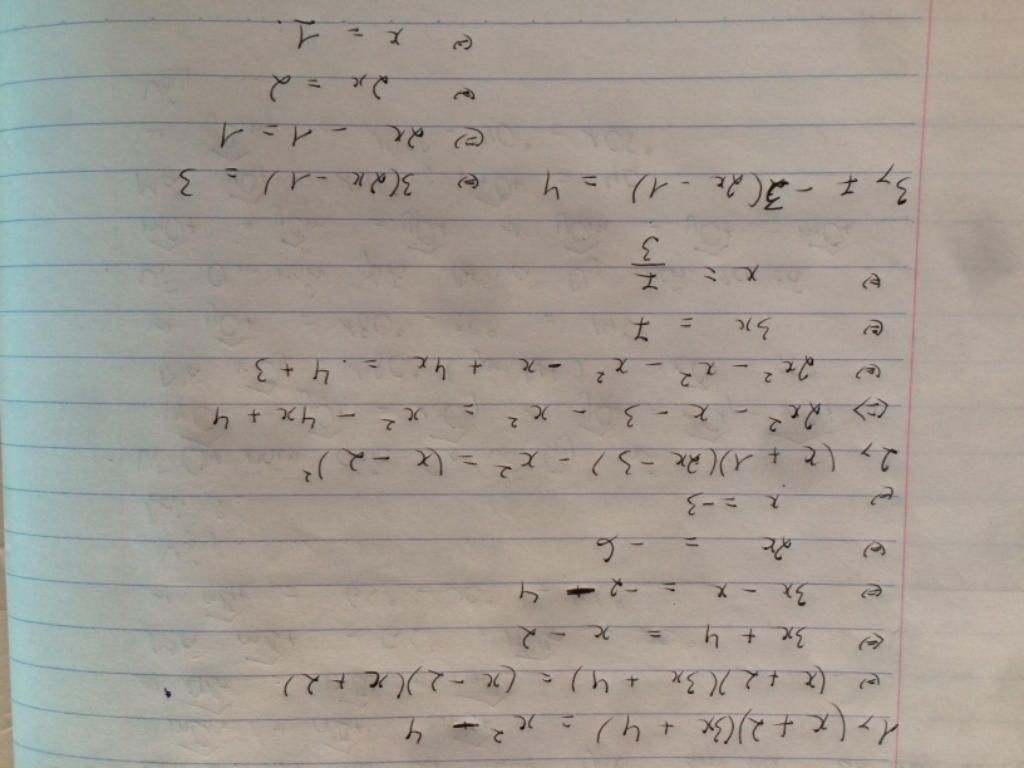 1, (x + 2)(3x + 4) = x² - 4
⇔ (x + 2)(3x + 4) = (x - 2)(x + 2)
⇔ 3x + 4 = x - 2
⇔ 3x - x = -2 - 4
⇔ 2x = -6
⇔ x = -3
2, (x + 1)(2x - 3) - x² = (x - 2)²
⇔ 2x² - x - 3 - x² = x² - 4x + 4
⇔ 2x² - x² - x² - x + 4x = 4 + 3
⇔ 3x = 7
⇔ x = 7/3
3, 7 - 3(2x - 1) = 4 ⇔ 3(2x - 1) = 3
⇔ 2x - 1 = 1
⇔ 2x = 2
⇔ x = 1.